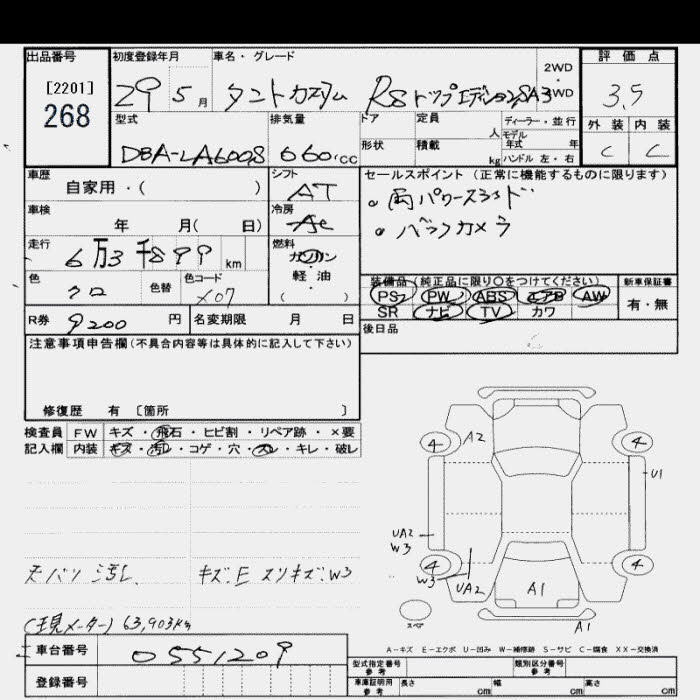 出品番号 初度登録年月 車名・グレード 2WD 評価点
[2201] 268 29 5月 タントカスタム RSトップエディションSAⅢ ・ 4WD 3.5
型式 排気量 ドア 定員 人 ディーラー・並行 外装 内装
DBA-LA600S 660cc 形状 積載 kg モデル年式 年 C C
ハンドル 左・右
車歴 自家用・( ) シフト AT セールスポイント(正常に機能するものに限ります)
車検 年 月( 日) 冷房 AC 。両パワースライド
走行 6万3千899km 燃料 ガソリン・軽油・( ) 。バックカメラ
色 クロ 色替 色コード X07 装備品(純正品に限り○をつけてください) 新車保証書
PS PW ABS エアB AW 有・無
SR ナビ TV カワ
R券 9200円 名変期限 月 日 後日品
注意事項申告欄(不具合内容等は具体的に記入して下さい)
修復歴 有 〔箇所 〕
検査員 FW キズ・飛石・ヒビ割・リペア跡・×要
記入欄 内装 キズ・汚れ・コゲ・穴・スレ・キレ・破レ
4 A2 4
U1
UA2
W3
4 W3 UA2 A1 4
スペア A1
汚れ、 キズ.E スリキズ.W3
(現メーター) 63,903km
A-キズ E-エクボ U-凹み W-補修跡 S-サビ C-腐食 XX-交換済
車台番号 0551209 型式指定番号 参考 類別区分番号 参考
登録番号 車庫証明用 参考 長さ cm 幅 cm 高さ cm